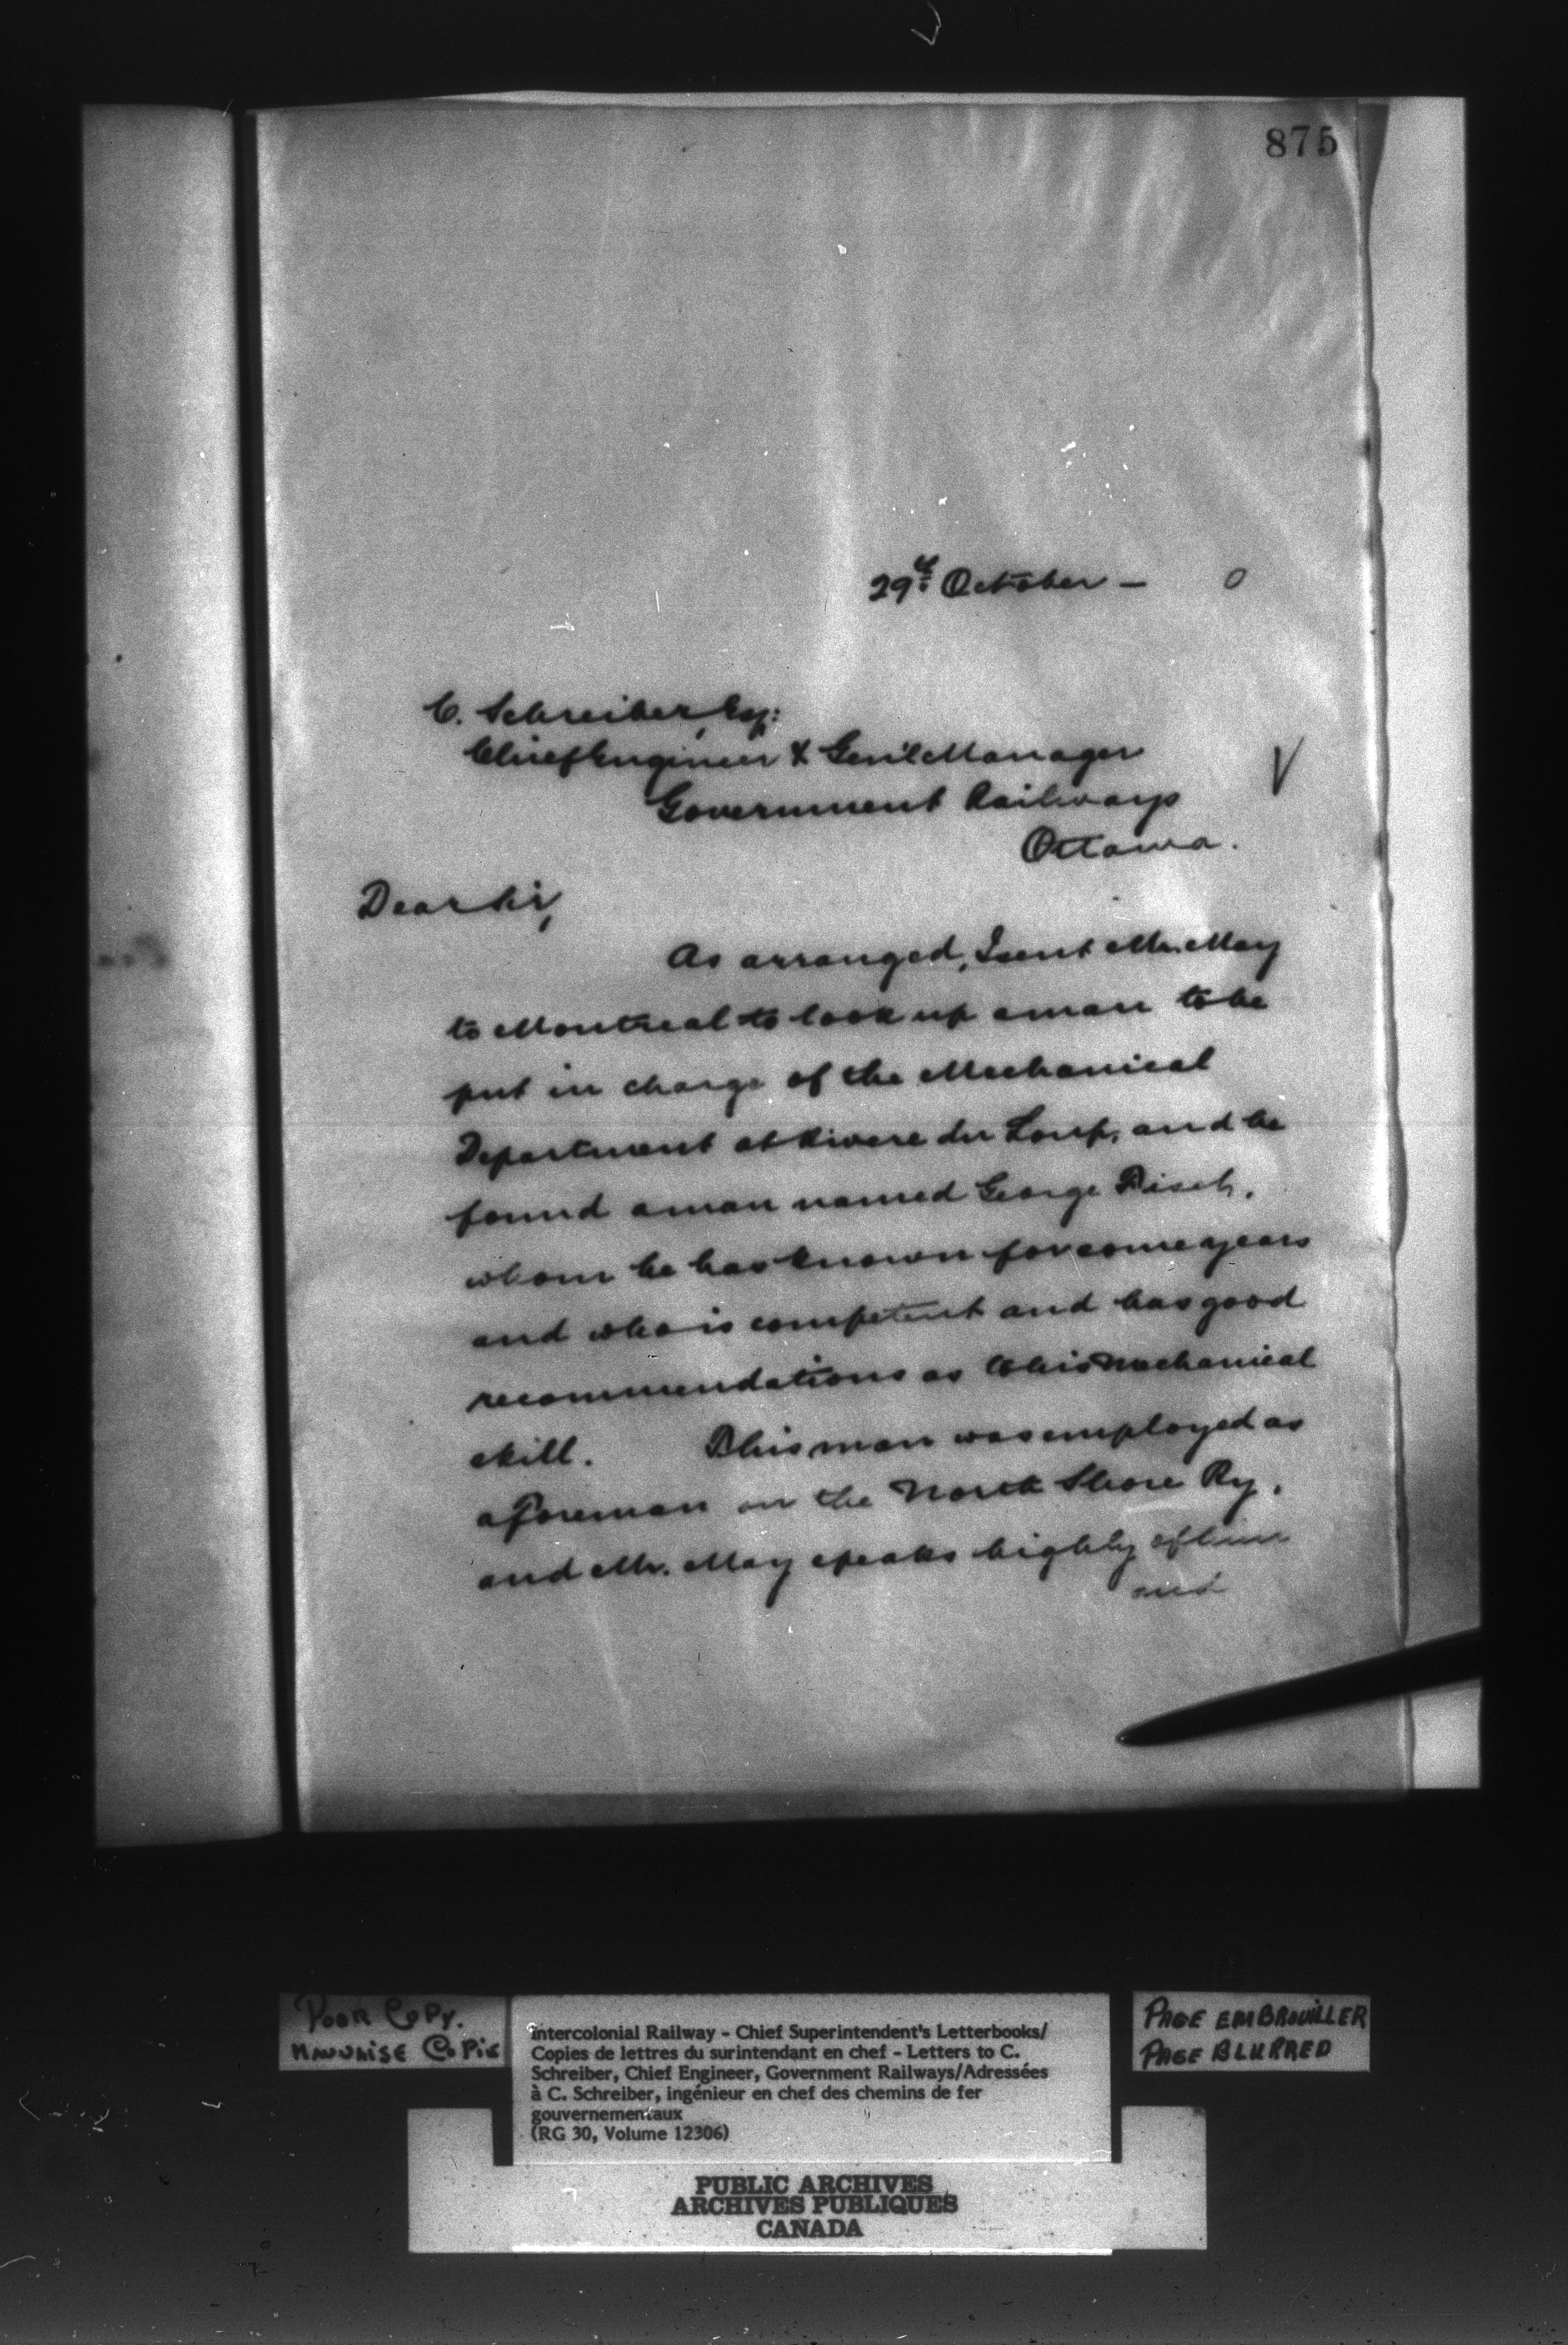 875
29th October — 0
C. Schreiber, Esq:
Chief Engineer & Gen'l Manager
Government Railways
Ottawa.
Dear Sir,
As arranged, I sent Mr. May
to Montreal to look up a man to be
put in charge of the Mechanical
Department at Rivere du Loup, and he
found a man named George
whom he has known for some years
and who is competent and has good
recommendations as to his mechanical
skill. This man was employed as
a foreman on the North Shore Ry,
and Mr. May speaks highly of him
and
POOR COPY.
MAUVAISE COPIE
Intercolonial Railway - Chief Superintendent's Letterbooks/
Copies de lettres du surintendant en chef - Letters to C.
Schreiber, Chief Engineer, Government Railways/Adressées
à C. Schreiber, ingénieur en chef des chemins de fer
gouvernementaux
(RG 30, Volume 12306)
PAGE EMBROUILLER
PAGE BLURRED
PUBLIC ARCHIVES
ARCHIVES PUBLIQUES
CANADA